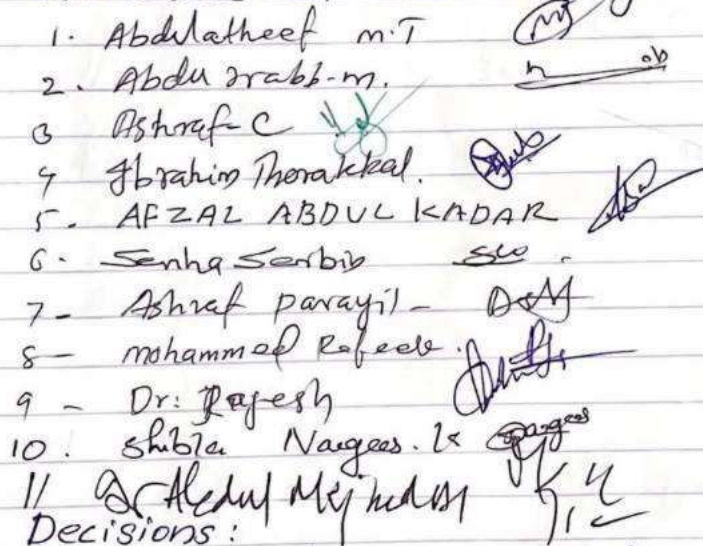 1. Abdulatheef m.T
2. Abdu rabb-m.
3 Ashraf-C
4 Ibrahim Thorakkal.
5- AFZAL ABDUL KADAR
6- Senha Serbin
7- Ashraf parayil-
8- mohammed Rafeek.
9- Dr: Rajesh
10. Shibla Nargees. K
11 Dr Abdul
Decisions: